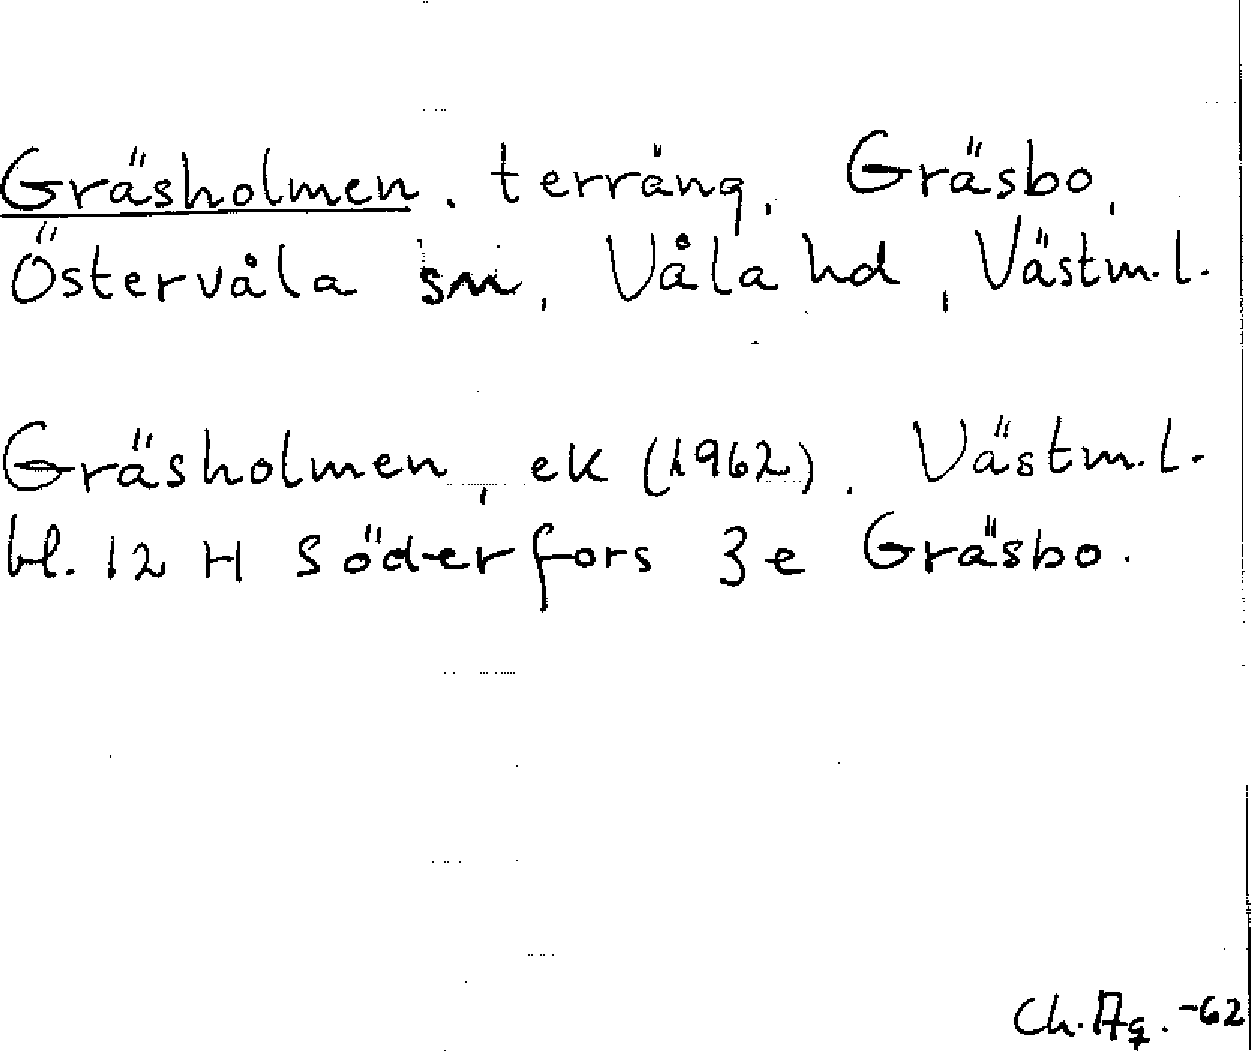 Gräsholmen. terräng, Gräsbo,
Östervåla sn, Våla hd, Västm.l.
Gräsholmen, ek (1962). Västm.l.
bl. 12 H Söderfors 3e Gräsbo.
Ch. Ag. -62